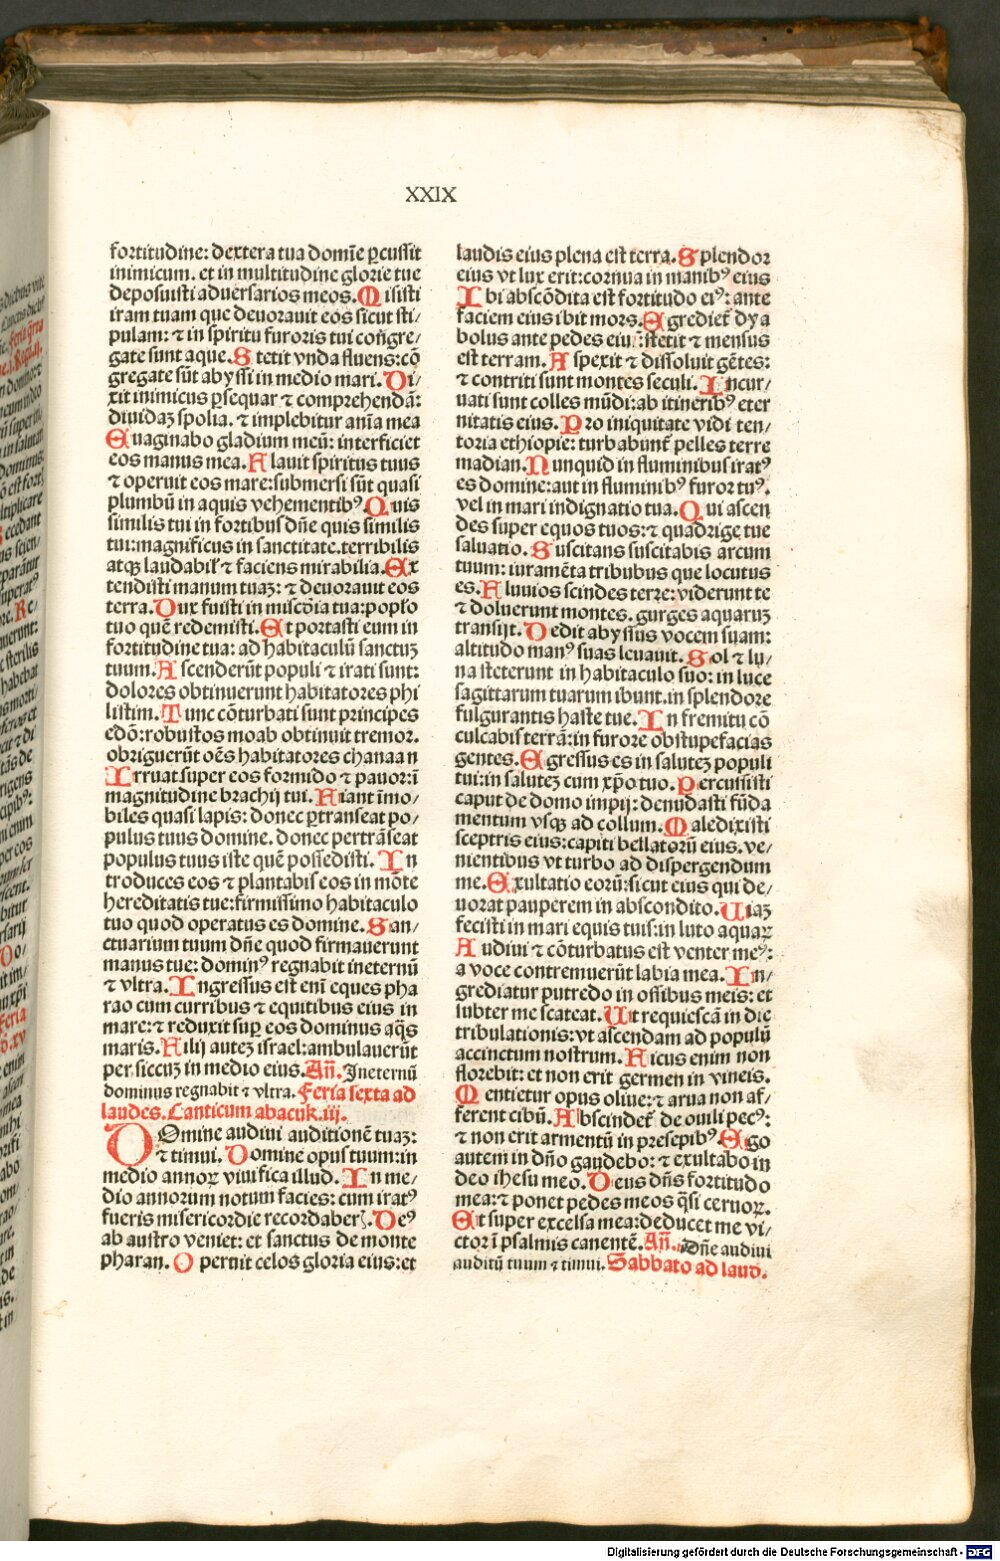 XXIX
fortitudine: dextera tua domīe ꝑcussit
inimicum. et in multitudine glorie tue
deposuisti aduersarios meos. Misisti
iram tuam que deuorauit eos sicut sti/
pulam: ⁊ in spiritu furoris tui congre/
gate sunt aque. Stetit vnda fluens: cō
gregate sūt abyssi in medio mari. Di/
xit inimicus ꝑsequar ⁊ comprehendā:
diuidaꝫ spolia. ⁊ implebitur aīa mea
Euaginabo gladium meū: interficiet
eos manus mea. Flauit spiritus tuus
⁊ operuit eos mare: submersi sūt quasi
plumbū in aquis vehementibꝰ. Quis
similis tui in fortibus dn̄e quis similis
tui: magnificus in sanctitate. terribilis
atqꝫ laudabil' ⁊ faciens mirabilia. Ex
tendisti manum tuaꝫ: ⁊ deuorauit eos
terra. Dux fuisti in misc̄ōia tua: poplo
tuo quē redemisti. Et portasti eum in
fortitudine tua: ad habitaculū sanctuꝫ
tuum. Ascenderūt populi ⁊ irati sunt:
dolores obtinuerunt habitatores phi
listim. Tunc cōturbati sunt principes
edō: robustos moab obtinuit tremor.
obriguerūt oēs habitatores chanaan
Irruat super eos formido ⁊ pauor: ī
magnitudine brachij tui. Fiant īmo/
biles quasi lapis: donec ꝑtranseat po/
pulus tuus domine. donec pertrāseat
populus tuus iste quē possedisti. In
troduces eos ⁊ plantabis eos in mōte
hereditatis tue: firmissimo habitaculo
tuo quod operatus es domine. San/
ctuarium tuum dn̄e quod firmauerunt
manus tue: dominꝰ regnabit ineternū
⁊ vltra. Ingressus est enī eques pha
rao cum curribus ⁊ equitibus eius in
mare: ⁊ reduxit suꝑ eos dominus aq̄s
maris. Filij auteꝫ israel: ambulauerūt
per siccuꝫ in medio eius. Añ. Ineternū
dominus regnabit ⁊ vltra. Feria sexta ad
laudes. Canticum abacuk. iij.
DOmine audiui auditionē tuaꝫ:
⁊ timui. Domine opus tuum: in
medio annoꝝ viuifica illud. In me/
dio annorum notum facies: cum iratꝰ
fueris misericordie recordaber[. Deꝰ
ab austro veniet: et sanctus de monte
pharan. Operuit celos gloria eius: et
laudis eius plena est terra. Splendor
eius vt lux erit: cornua in manibꝰ eius
Ibi abscōdita est fortitudo eiꝰ: ante
faciem eius ibit mors. Egrediet᷑ dya
bolus ante pedes eiuˢ: stetit ⁊ mensus
est terram. Aspexit ⁊ dissoluit gētes:
⁊ contriti sunt montes seculi. Incur/
uati sunt colles mūdi: ab itineribꝰ eter
nitatis eius. Pro iniquitate vidi ten/
toria ethiopie: turbabunt᷑ pelles terre
madian. Nunquid in fluminibus iratꝰ
es domine: aut in fluminibꝰ furor tuꝰ.
vel in mari indignatio tua. Qui ascen
des super equos tuos: ⁊ quadrige tue
saluatio. Suscitans suscitabis arcum
tuum: iuramēta tribubus que locutus
es. Fluuios scindes terre: viderunt te
⁊ doluerunt montes. gurges aquaruꝫ
transijt. Dedit abyssus vocem suam:
altitudo manꝰ suas leuauit. Sol ⁊ lu/
na steterunt in habitaculo suo: in luce
sagittarum tuarum ibunt. in splendore
fulgurantis haste tue. In fremitu cō
culcabis terrā: in furore obstupefacias
gentes. Egressus es in saluteꝫ populi
tui: in saluteꝫ cum xp̄o tuo. Percussisti
caput de domo impij: denudasti fūda
mentum vsqꝫ ad collum. Maledixisti
sceptris eius: capiti bellatorū eius. ve/
nientibus vt turbo ad dispergendum
me. Exultatio eorū: sicut eius qui de/
uorat pauperem in abscondito. Uiaꝫ
fecisti in mari equis tuis: in luto aquaꝝ
Audiui ⁊ cōturbatus est venter meꝰ:
a voce contremuerūt labia mea. In/
grediatur putredo in ossibus meis: et
subter me scateat. Ut requiescā in die
tribulationis: vt ascendam ad populū
accinctum nostrum. Ficus enim non
florebit: et non erit germen in vineis.
Mentietur opus oliue: ⁊ arua non af/
ferent cibū. Abscindet᷑ de ouili pecꝰ:
⁊ non erit armentū in presepibꝰ. Ego
autem in dn̄o gaudebo: ⁊ exultabo in
deo ihesu meo. Deus dn̄s fortitudo
mea: ⁊ ponet pedes meos q̄si ceruoꝝ.
Et super excelsa mea: deducet me vi/
ctor ī psalmis canentē. Añ. Dn̄e audiui
auditū tuum ⁊ timui. Sabbato ad laud.
Digitalisierung gefördert durch die Deutsche Forschungsgemeinschaft - DFG